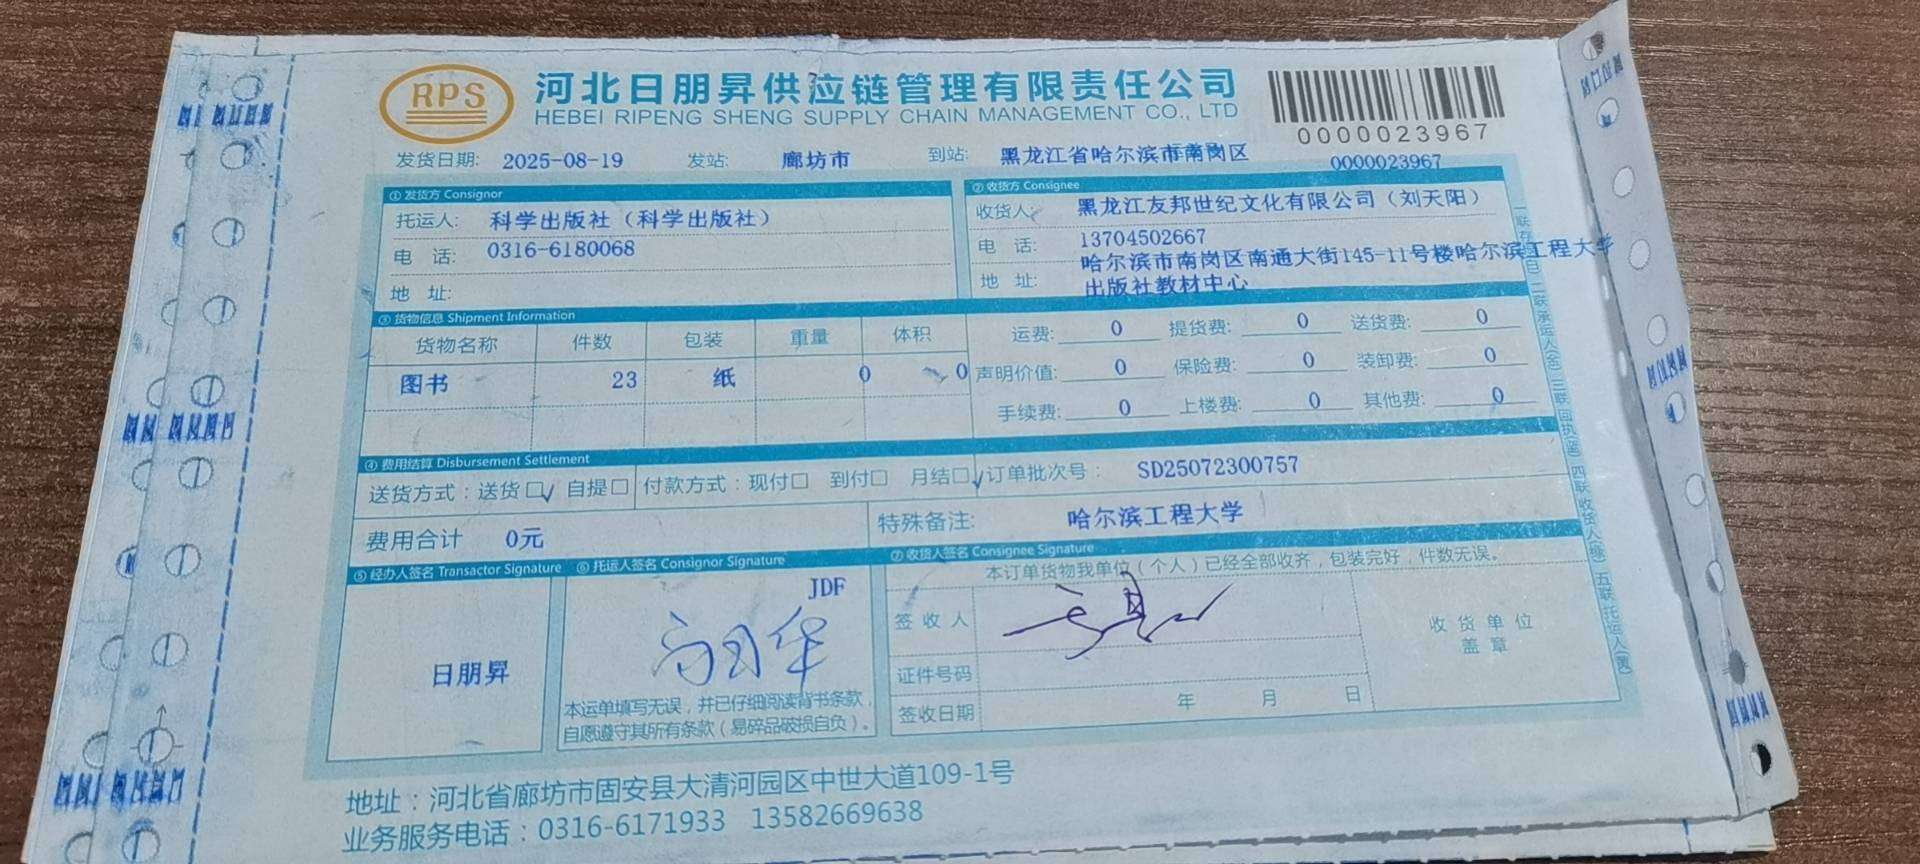 RPS
河北日朋昇供应链管理有限责任公司
HEBEI RIPENG SHENG SUPPLY CHAIN MANAGEMENT CO., LTD
0000023967
发货日期: 2025-08-19 发站: 廊坊市 到站: 黑龙江省哈尔滨市南岗区 0000023967
① 发货方 Consignor
托运人: 科学出版社（科学出版社）
电 话: 0316-6180068
地 址:
② 收货方 Consignee
收货人: 黑龙江友邦世纪文化有限公司（刘天阳）
电 话: 13704502667
地 址: 哈尔滨市南岗区南通大街145-11号楼哈尔滨工程大学
出版社教材中心
③ 货物信息 Shipment Information
货物名称 件数 包装 重量 体积
图书 23 纸 0 0
运费: 0 提货费: 0 送货费: 0
声明价值: 0 保险费: 0 装卸费: 0
手续费: 0 上楼费: 0 其他费: 0
④ 费用结算 Disbursement Settlement
送货方式：送货□√ 自提□ 付款方式：现付□ 到付□ 月结□√ 订单批次号： SD25072300757
费用合计 0元 特殊备注: 哈尔滨工程大学
⑤ 经办人签名 Transactor Signature
日朋昇
⑥ 托运人签名 Consignor Signature
JDF
本运单填写无误，并已仔细阅读背书条款，
自愿遵守其所有条款（易碎品破损自负）。
⑦ 收货人签名 Consignee Signature
本订单货物我单位（个人）已经全部收齐，包装完好，件数无误。
签 收 人
证件号码
签收日期 年 月 日
收 货 单 位
盖 章
地址：河北省廊坊市固安县大清河园区中世大道109-1号
业务服务电话：0316-6171933 13582669638